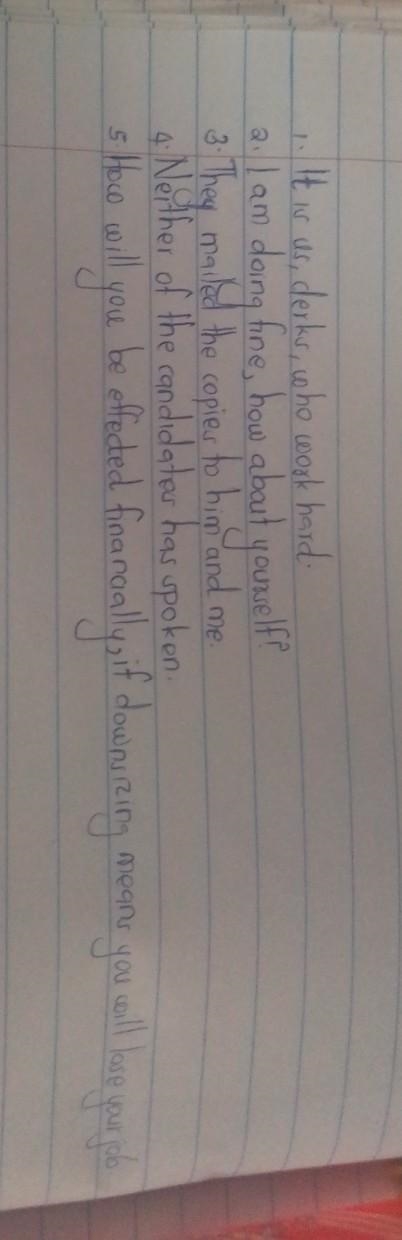 1. It is us, clerks, who work hard.
2. I am doing fine, how about yourself?
3. They mailed the copies to him and me.
4. Neither of the candidates has spoken.
5. How will you be effected financially, if downsizing means you will lose your job